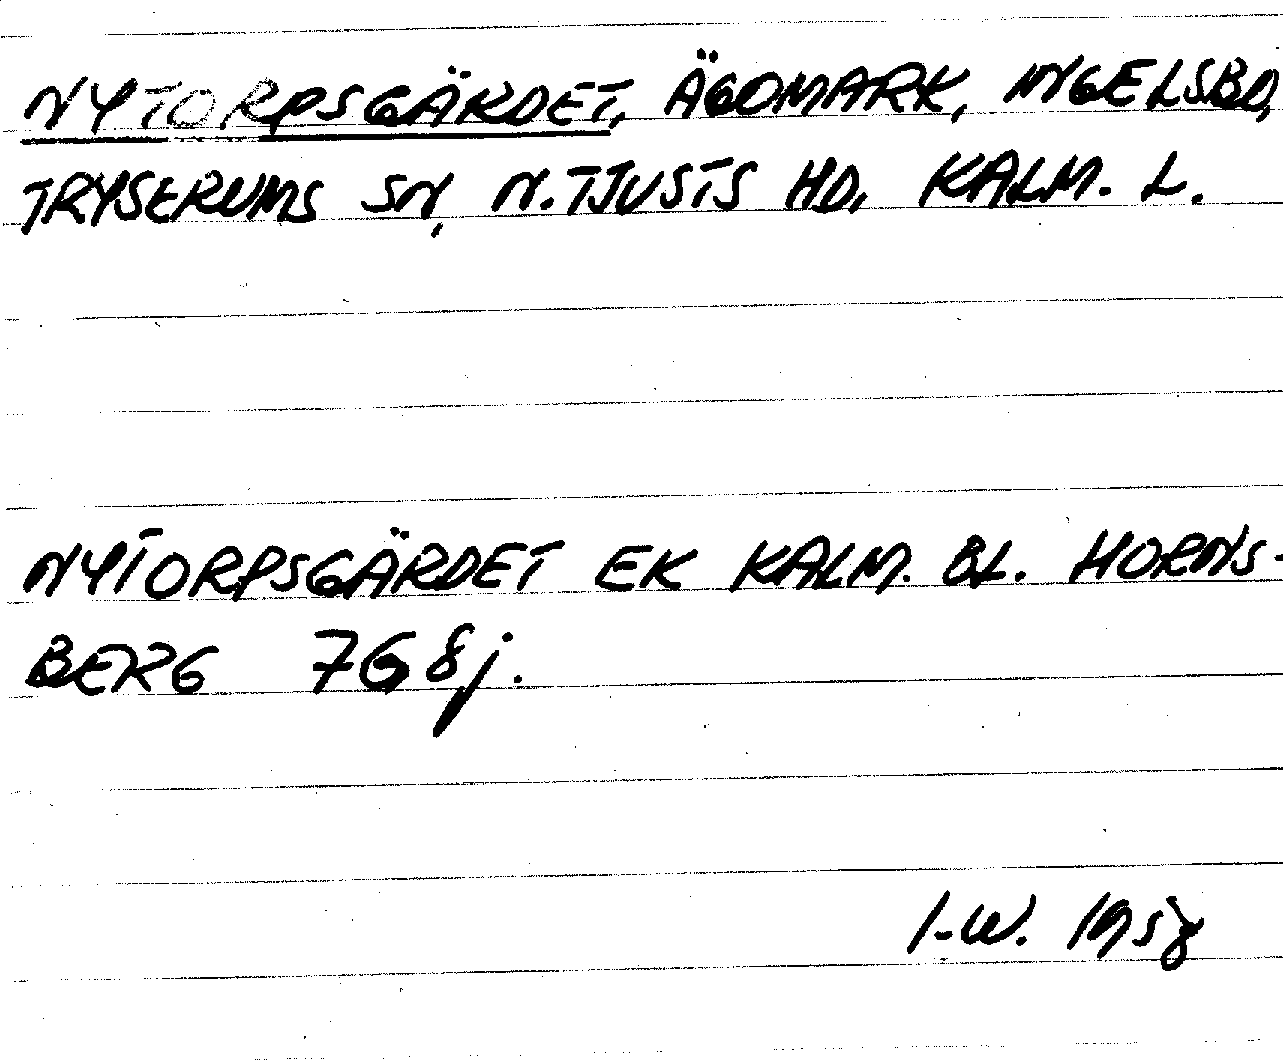 NYTORPSGÄRDET, ÄGOMARK, INGELSBO,
TRYSERUMS SN, N. TJUSTS HD, KALM. L.
NYTORPSGÄRDET EK KALM. BL. HORNS-
BERG 7G 8j.
I.W. 1958